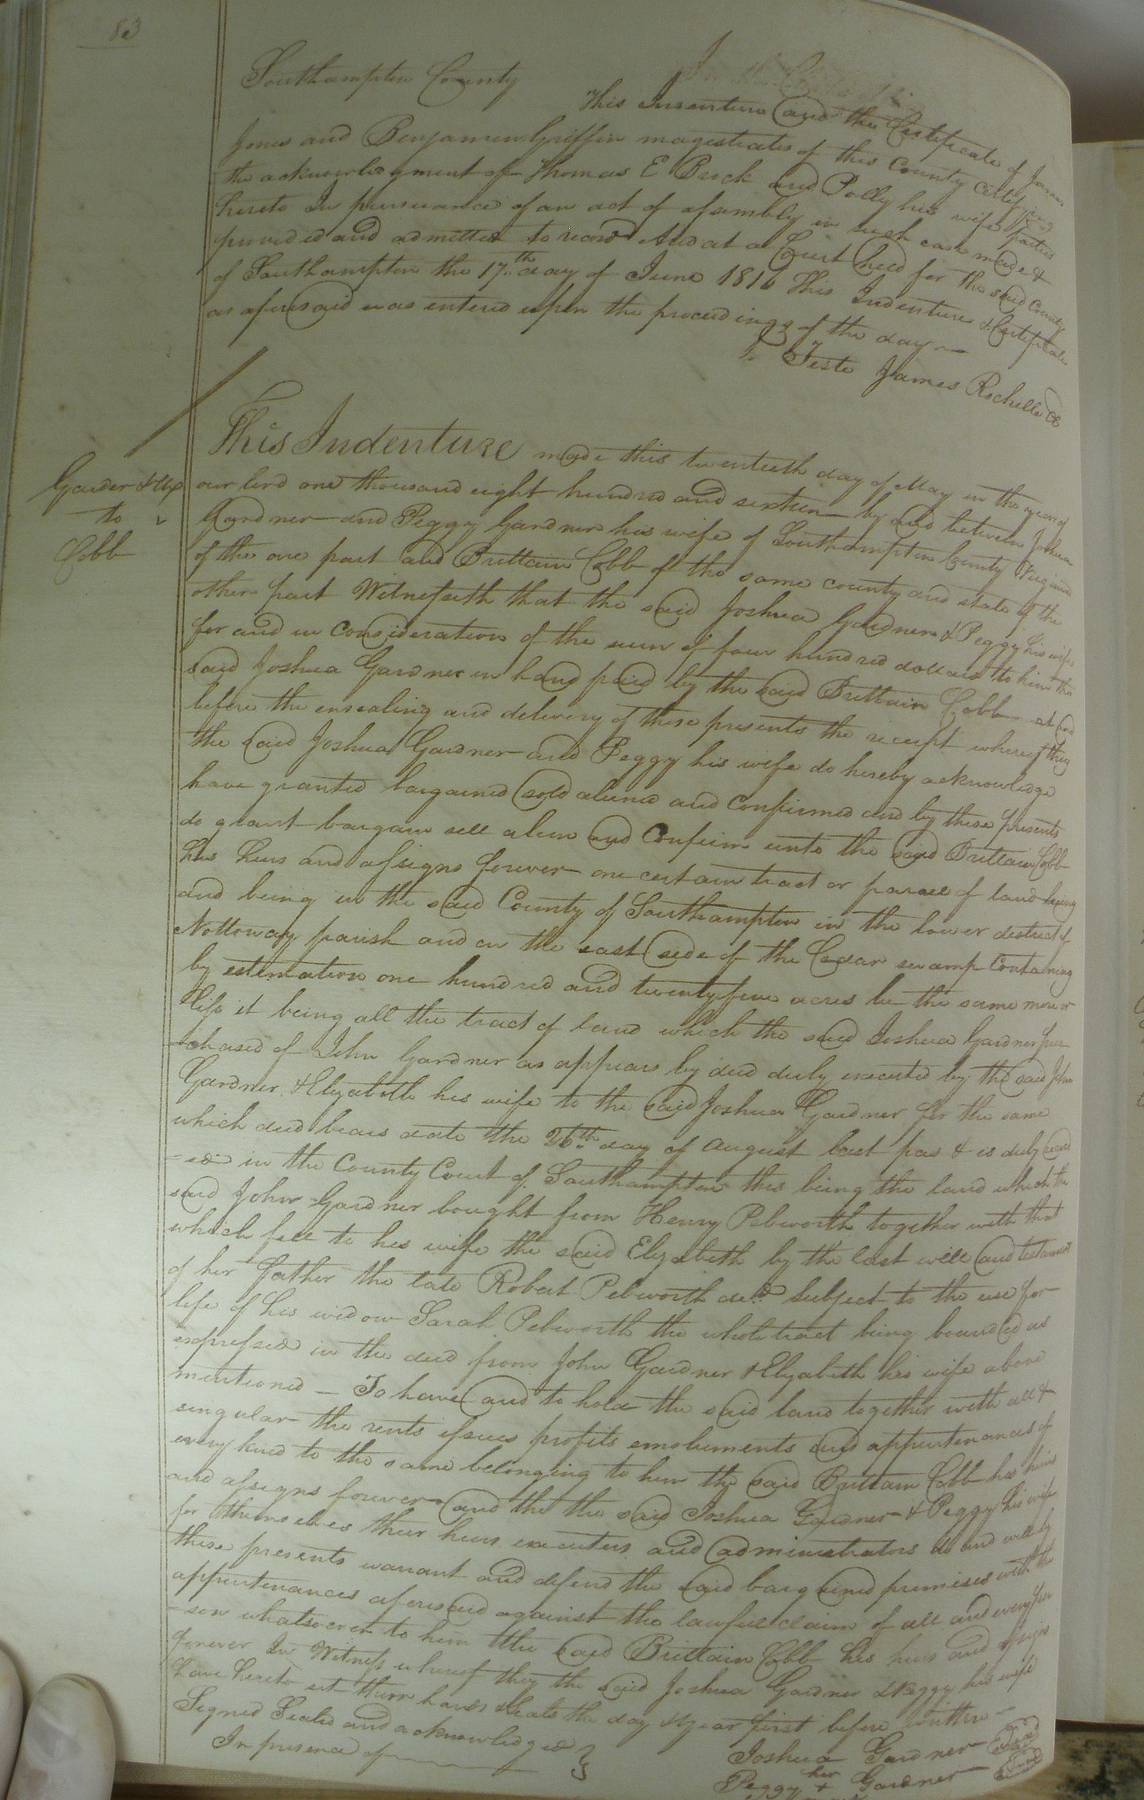 83
Southampton County
This Indenture and the Certificate of James
Jones and Benjamin Griffin magestrates of this County Certifying
the acknowledgment of Thomas E Brock and Polly his wife parties
hereto In pursuance of an act of assembly in such case made &
provided and admitted to record And at a Court held for the said County
of Southampton the 17th day of June 1816 This Indenture & Certificate
as aforesaid was entered upon the proceedings of the day
Teste James Rochelle CC
Garder & Ux
to
Cobb
This Indenture made this twentieth day of May in the year of
our lord one thousand eight hundred and sixteen by and between Joshua
Gardner and Peggy Gardner his wife of Southampton County Virginia
of the one part and Brittain Cobb of the same county and state of the
other part Witnesseth that the said Joshua Gardner & Peggy his wife
for and in consideration of the sum of four hundred dollars to him the
said Joshua Gardner in hand paid by the said Brittain Cobb at and
before the ensealing and delivery of these presents the receipt whereof they
the said Joshua Gardner and Peggy his wife do hereby acknowledge
have granted bargained sold aliened and confirmed and by these presents
do grant bargain sell alien and Confirm unto the said Brittain Cobb
his heirs and assigns forever one certain tract or parcel of land lying
and being in the said County of Southampton in the lower destrect of
Nottoway parish and on the east side of the Cedar swamp Containing
by estimation one hundred and twenty five acres be the same more or
less it being all the tract of land which the said Joshua Gardner pur
-chased of John Gardner as appears by deed duly executed by the said John
Gardner & Elizabeth his wife to the said Joshua Gardner for the same
which deed bears date the 26th day of August last pas & is duly record
-ed in the County Court of Southampton this being the land which the
said John Gardner bought from Henry Pebworth together with that
which fell to his wife the said Elizabeth by the last will and testament
of her father the late Robert Pebworth decd subject to the use for
life of his widow Sarah Pebworth the whole tract being bounded as
expressed in the deed from John Gardner & Elizabeth his wife above
mentioned — To have and to hold the said land together with all &
singular the rents issues profits emoluments and appurtenances of
every kind to the same belonging to him the said Brittain Cobb his heirs
and assigns forever and the the said Joshua Gardner & Peggy his wife
for themselves their heirs executors and administrators do and will by
these presents warrant and defend the said bargained premises with the
appurtenances aforesaid against the lawful claim of all and every per
-son whatsoever to him the said Brittain Cobb his heirs and assigns
forever In Witness whereof they the said Joshua Gardner & Peggy his wife
have hereto set their hands & seals the day & year first before written —
Signed Sealed and acknowledged
In presence of
Joshua Gardner Seal
Peggy her + Gardner Seal